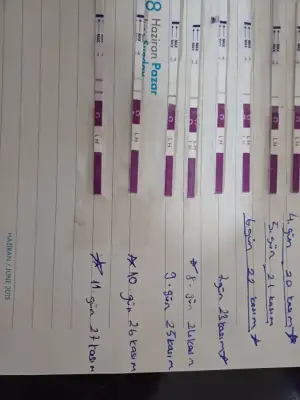 4. gün 20 kasım
5. gün 21 kasım
6. gün 22 kasım
7. gün 23 kasım
8. gün 24 kasım
9. gün 25 kasım
10. gün 26 kasım
11 gün 27 kasım
8 Haziran Pazar
Sunday
LH
LH
LH
LH
LH
LH
LH
HAZİRAN / JUNE 2025